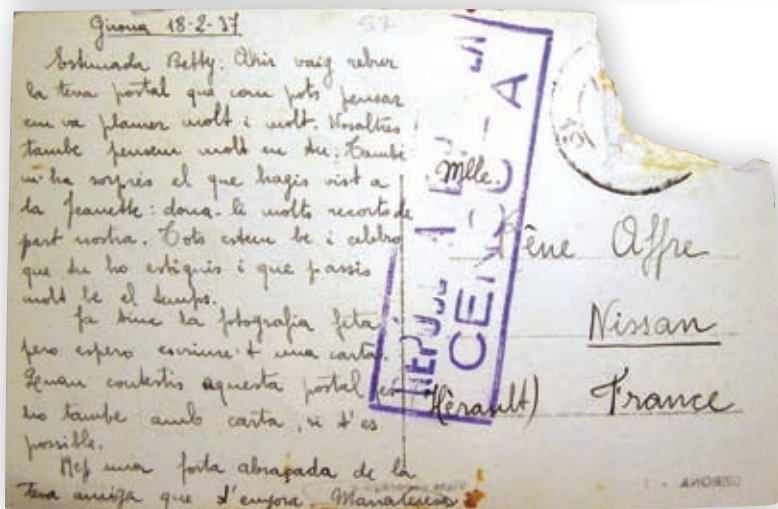 Girona 18-2-37
Estimada Betty: Ahir vaig rebrer
la teva postal que com pots pensar
em va plaurer molt i molt. Nosaltres
també pensem molt en tu. També
m'ha sorprès el que hagis vist a
la Jeanette: dona-li molts recorts de
part nostra. Tots estem be i celebro
que tu ho estiguis i que passis
molt be el temps.
Ja tinc la fotografia feta
pero espero escriure't una carta.
Quan contestis aquesta postal
ho tambe amb carta, si t'es
possible.
Rep una forta abraçada de la
teva amiga que t'enyora.
CENSU
Mlle.
Affre
Nissan
Hèrault) France